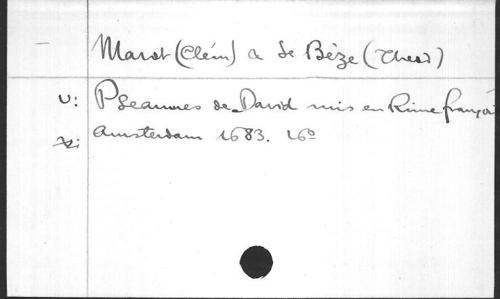 Marot (Clém) a de Bèze (Theod)
U: Pseaumes de David mis en Rime françoi
Amsterdam 1683. 16º